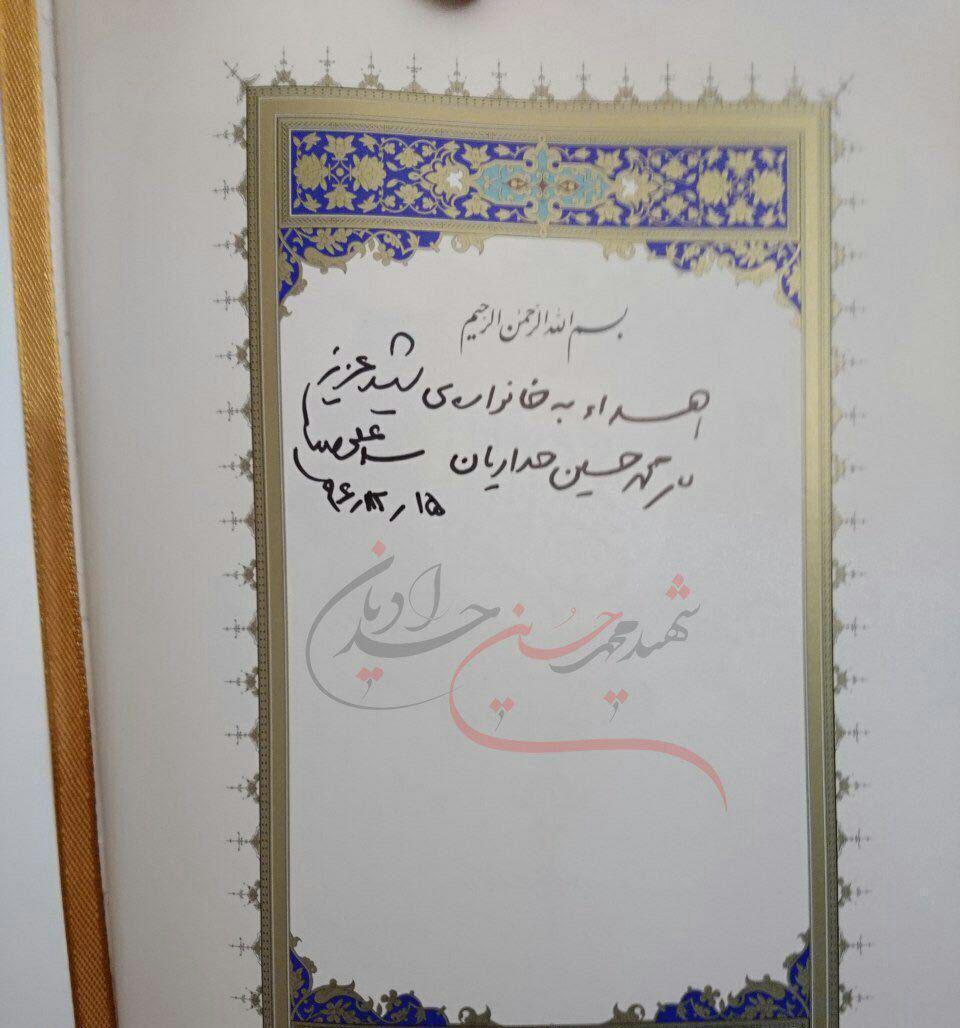 بسم الله الرحمن الرحیم
اهداء به خانواده‌ی شهید عزیز
محمد حسین حدادیان
سید علی
۹۶٫۱۲٫۱۵
شهید محمد حسین حدادیان